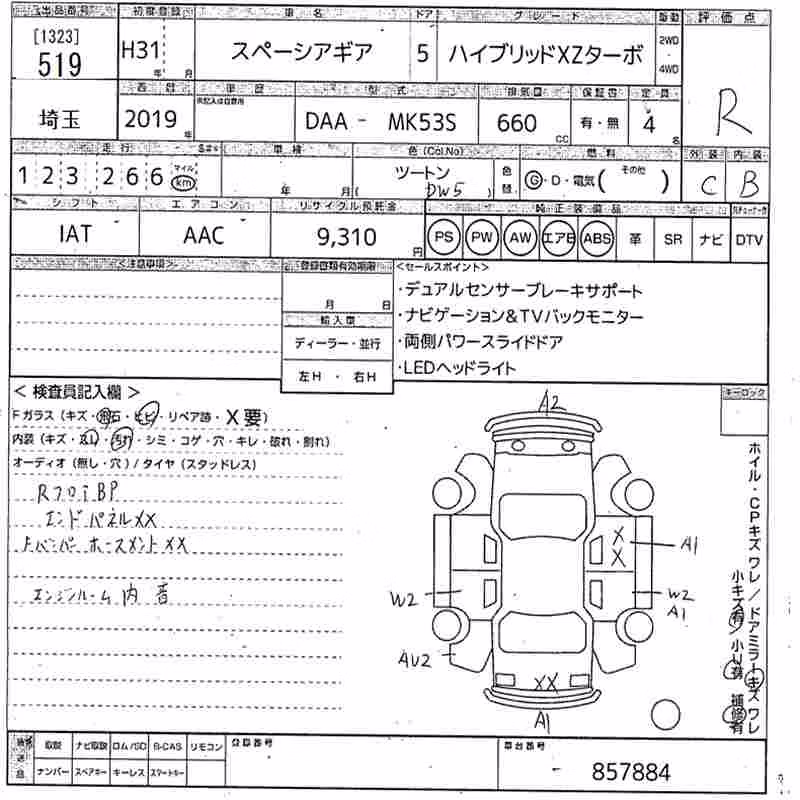 出品番号 初度登録 車名 ドア グレード 駆動 評価点
[1323]
519 H31 年 月 スペーシアギア 5 ハイブリッドXZターボ 2WD 4WD R
車歴 型式 排気量 保証書 定員
埼玉 2019年 DAA - MK53S 660 CC 有・無 4名
走行 車検 色(Col.No) 燃料 外装 内装
123,266 マイル km 年 月 ツートン ( DW5 ) 色替 G・D・電気( その他 ) C B
シフト エアコン リサイクル預託金 純正装備品
IAT AAC 9,310円 PS PW AW エアB ABS 革 SR ナビ DTV
<注意事項> 登録書類有効期限 <セールスポイント>
月 日 ・デュアルセンサーブレーキサポート
輸入車 ・ナビゲーション&TVバックモニター
ディーラー・並行 ・両側パワースライドドア
左H・右H ・LEDヘッドライト
<検査員記入欄> キーロック
Fガラス(キズ・飛石・ヒビ・リペア跡・X要)
内装(キズ・スレ・汚れ・シミ・コゲ・穴・キレ・破れ・割れ)
オーディオ(無し・穴)/タイヤ(スタッドレス)
エンドパネルXX
エンジンルーム内 音
A2
XX
A1
W2
W2
A1
AU2
XX
A1
ホイル・CPキズ ワレ/ドアミラーキズ ワレ
小キズ有 小U有 補修有
取説 ナビ取説 ロム/SD B-CAS リモコン 登録番号 車台番号
ナンバー スペアキー キーレス スマートキー 857884